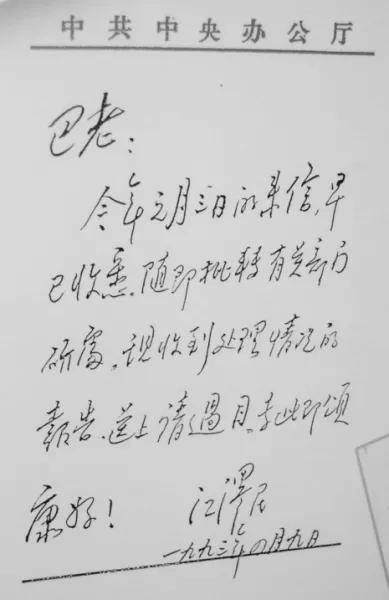 中共中央办公厅
巴老：
今年元月三日的来信，早
已收悉，随即批转有关部门
研处。现收到处理情况的
报告，送上请过目。专此即颂
康好！
江泽民
一九九三年四月九日